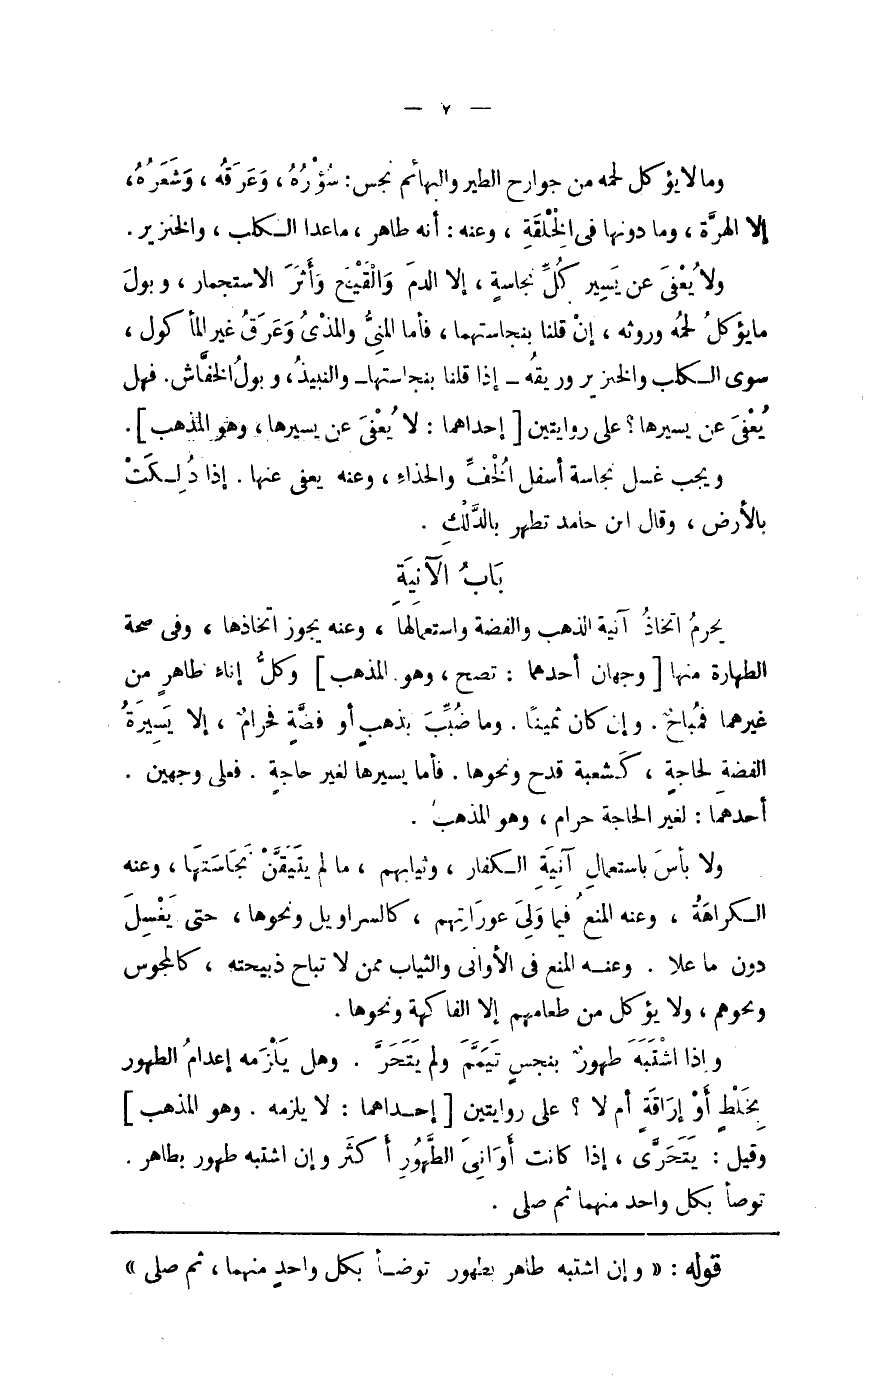 — ٧ —
وما لا يؤكل لحمه من جوارح الطير والبهائم نجس: سُؤْرُهُ، وَعَرَقُه، وَشَعَرُهُ،
إلا الهرَّة، وما دونها فى الخْلْقَةِ، وعنه: أنه طاهر، ماعدا الكلب، والخنزير.
ولا يُعْفىَ عن يَسِيرِ كُلِّ نجاسةٍ، إلا الدمَ وَالْقَيْحَ وَأَثَرَ الاستجمار، وبولَ
مايؤكلُ لحمُه وروثه، إنْ قلنا بنجاستهما، فأما المنىُّ والمذْىُ وَعَرَقُ غير المأكول،
سوى الكلب والخنزير وريقُه – إذا قلنا بنجاستها– والنبيذُ، وبولُ الخفَّاش. فهل
يُعْفىَ عن يسيرها؟ على روايتين [ إحداهما: لا يُعْفىَ عن يسيرها، وهو المذهب].
ويجب غسل نجاسة أسفل الُخْفِّ والحذاءِ، وعنه يعفى عنها. إذا دُلِكَتْ
بالأرض، وقال ابن حامد تطهر بالدَّلْكِ.
بَابُ الْآنِيَةِ
يحرمُ اتخاذُ آنية الذهب والفضة واستعمالها، وعنه يجوز اتخاذها، وفى صحة
الطهارة منها [ وجهان أحدهما: تصح، وهو المذهب ] وكلُّ إناء طاهرٍ من
غيرهما فمُباحٌ. وإن كان ثمينًا. وما ضُبِّبَ بذهبٍ أو فضَّةٍ فحرامٌ، إلا يَسِيرَةُ
الفضةِ لحاجةٍ، كَشعبة قدح ونحوها. فأما يسيرها لغير حاجةٍ. فعلى وجهين.
أحدهما: لغير الحاجة حرام، وهو المذهب.
ولا بأسَ باستعمالِ آنِيَةِ الكفار، وثيابهم، ما لم يتَيَقَّنْ نَجَاسَتَهَا، وعنه
الكراهَةُ، وعنه المنعُ فيما وَلِىَ عورَاتِهم، كالسراويل ونحوها، حتى يَغْسِلَ
دون ما علا. وعنه المنع فى الأوانى والثياب ممن لا تباح ذبيحته، كالمجوس
ونحوهم، ولا يؤكل من طعامهم إلا الفاكهة ونحوها.
وإذا اشْتَبَهَ طهورٌ بنجسٍ تَيَمَّمَ ولم يَتَحَرَّ. وهل يَلْزَمه إعدامُ الطهور
بِخَلْطٍ أَوْ إرَاقَةٍ أم لا؟ على روايتين [ إحداهما: لا يلزمه. وهو المذهب ]
وقيل: يَتَحَرَّى، إذا كانت أوَانِىَ الطَّهُورِ أَكثَر وإن اشتبه طهور بطاهر.
توصأ بكل واحد منهما ثم صلى.
قوله: « وإن اشتبه طاهر بطهور توضأ بكل واحدٍ منهما، ثم صلى »